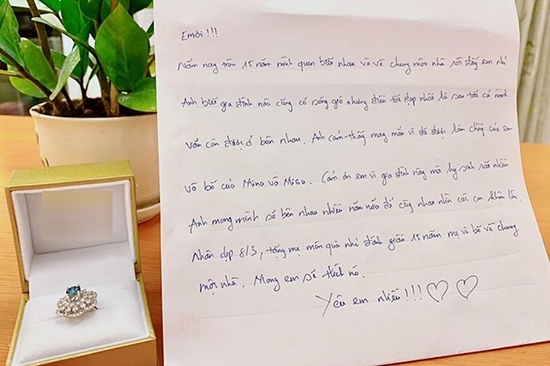 Em ơi !!!
Năm nay tròn 15 năm mình quen biết nhau và về chung một nhà rồi đấy em nhỉ
Anh biết gia đình nào cũng có sóng gió nhưng điều tốt đẹp nhất là sau tất cả mình
vẫn còn được ở bên nhau. Anh cảm thấy may mắn vì đã được làm chồng của em
và bố của Mina và Misa. Cảm ơn em vì gia đình này mà hy sinh rất nhiều
Anh mong mình sẽ bên nhau nhiều năm nữa để cùng nhau nhìn các con khôn lớn.
Nhân dịp 8/3, tặng mẹ món quà nhỏ đánh giấu 15 năm mẹ và bố về chung
một nhà. Mong em sẽ thích nó.
Yêu em nhiều !!!